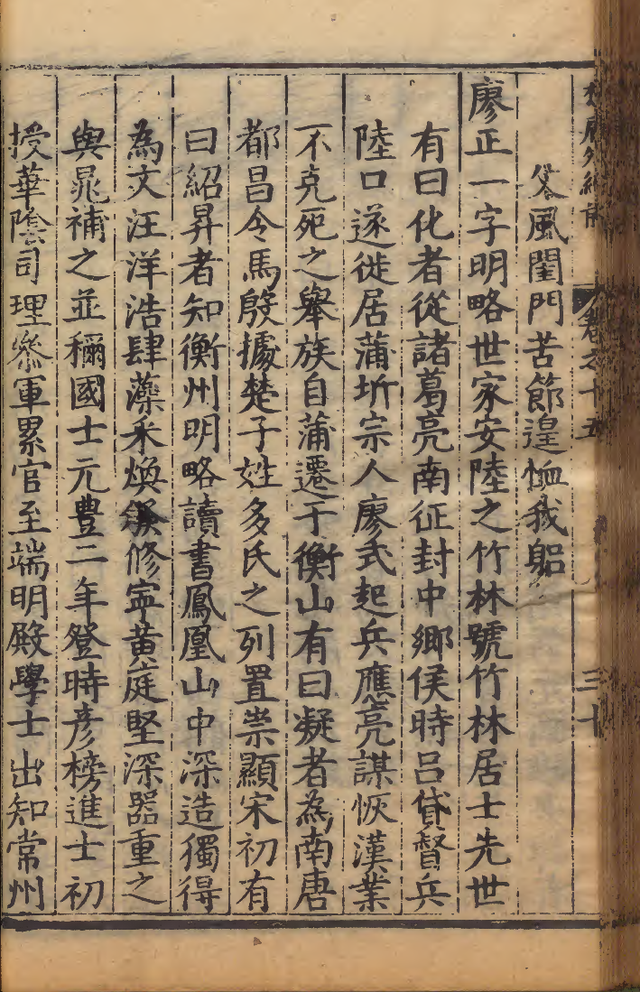 卷之十五
三十
父風閨門苦節遑恤我躬
廖正一字明略世家安陸之竹林號竹林居士先世
有曰化者從諸葛亮南征封中鄉侯時呂貸督兵
陸口遂徙居蒲圻宗人廖式起兵應亮謀恢漢業
不克死之舉族自蒲遷于衡山有曰凝者為南唐
都昌令馬殷據楚子姓多氏之列置祟顯宋初有
曰紹昇者知衡州明略讀書鳳凰山中深造獨得
為文汪洋浩肆藻釆煥發修寧黃庭堅深器重之
與晁補之並稱國士元豊二年登時彥榜進士初
授華陰司理叅軍累官至端明殿學士出知常州